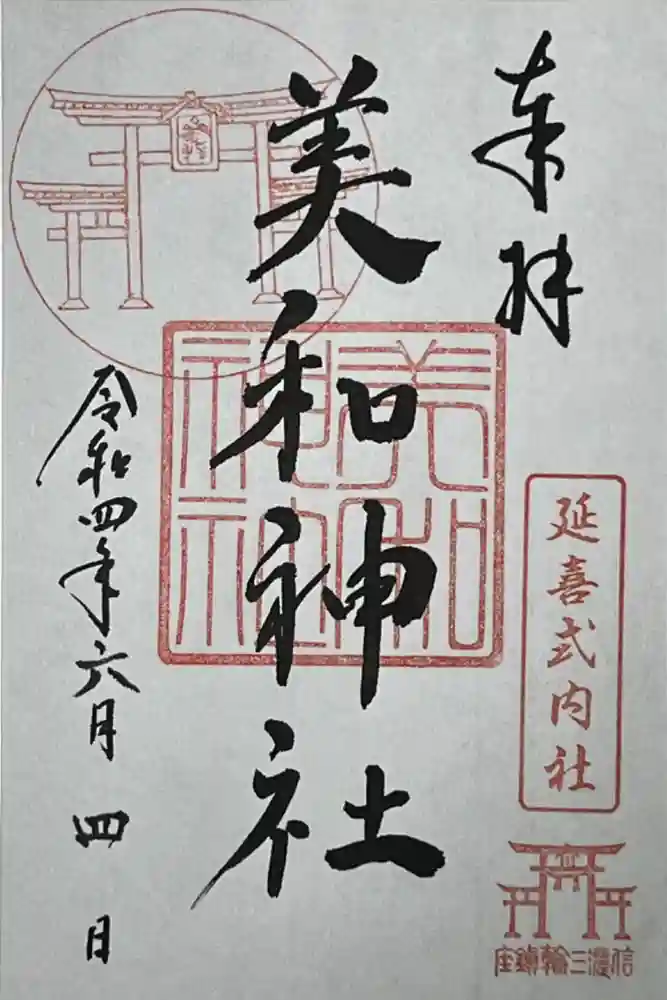 奉拝
延喜式内社
信濃三輪鎮座
美和神社
美和神社
令和四年六月四日